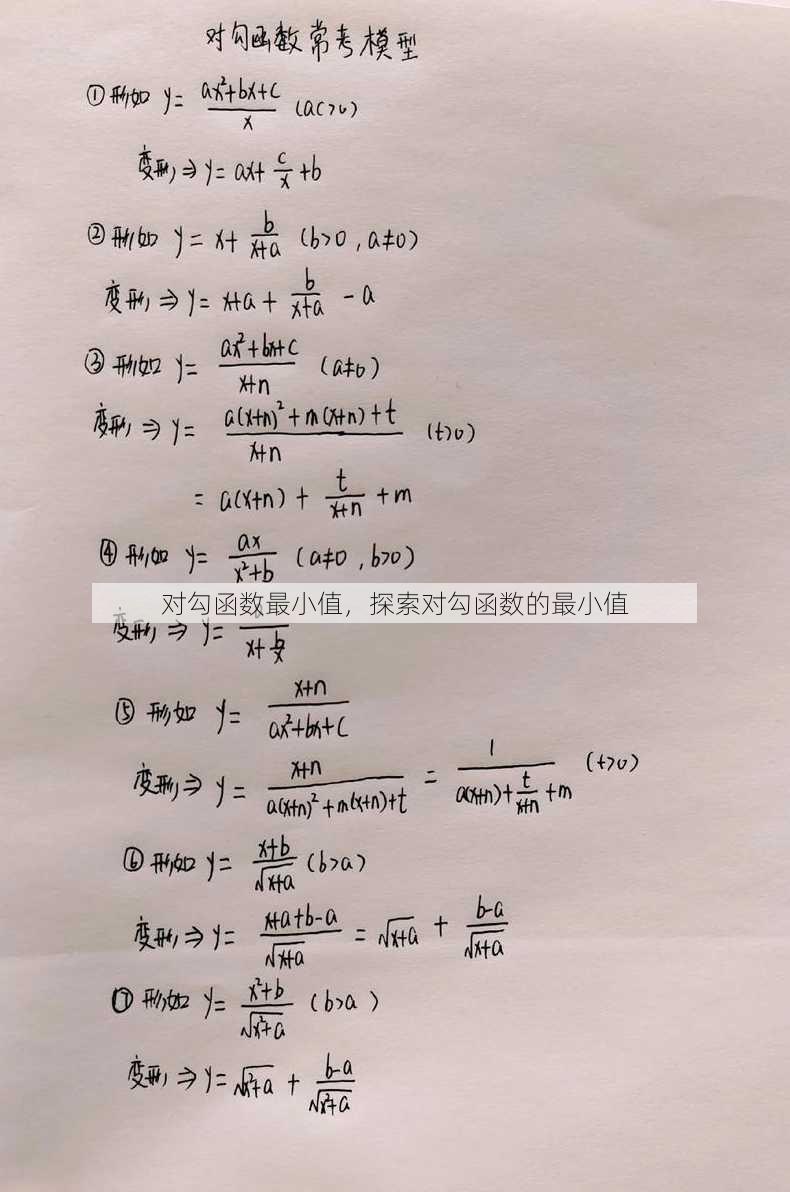 对勾函数常考模型
①形如 y= (ax²+bx+c)/x (ac>0)
变形⇒y=ax+c/x+b
②形如 y=x+b/(x+a) (b>0,a≠0)
变形⇒y=x+a+b/(x+a)-a
③形如 y=(ax²+bx+c)/(x+n) (a≠0)
变形⇒y=(a(x+n)²+m(x+n)+t)/(x+n) (t>0)
=a(x+n)+t/(x+n)+m
④形如 y=ax/(x²+b) (a≠0,b>0)
对勾函数最小值，探索对勾函数的最小值
变形⇒y= /(x+b/x)
⑤形如 y=(x+n)/(ax²+bx+c)
变形⇒y=(x+n)/(a(x+n)²+m(x+n)+t)=1/(a(x+n)+t/(x+n)+m) (t>0)
⑥形如 y=(x+b)/√(x+a) (b>a)
变形⇒y=(x+a+b-a)/√(x+a)=√(x+a)+(b-a)/√(x+a)
⑦形如 y=(x²+b)/√(x²+a) (b>a)
变形⇒y=√(x²+a)+(b-a)/√(x²+a)